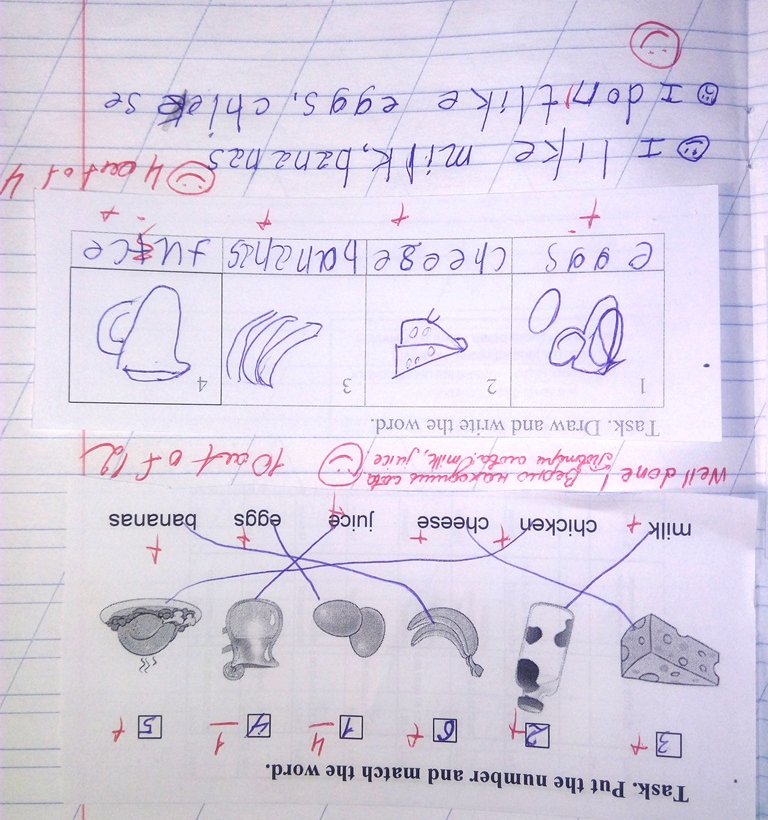 Task. Put the number and match the word.
3 + 2 + 6 + 1 4 4 1 5 +
milk + chicken + cheese + juice + eggs + bananas +
Well done! Верно находишь слова 10 out of 12
Повтори слова: milk, juice
Task. Draw and write the word.
1 2 3 4
eggs cheese bananas juice
+ + + +
4 out of 4
I like milk, bananas
I don't like eggs,